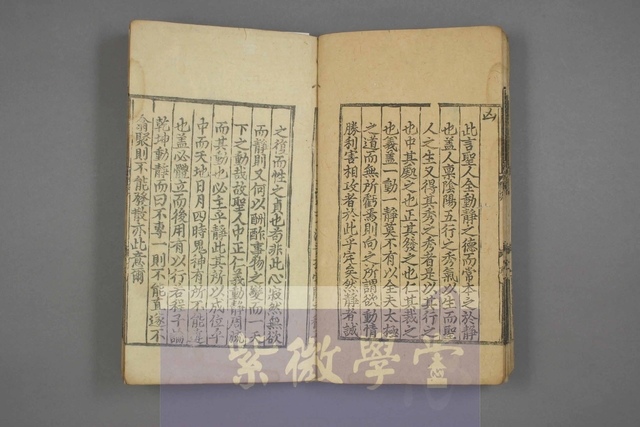 此言聖人全動靜之德而常本之於靜
也蓋人稟陰陽五行之秀氣以生而聖
人之生又得其秀之秀者是以其行之
也中其處之也正其發之也仁其裁之
也義蓋一動一靜莫不有以全夫太極
之道而無所虧焉則向之所謂欲動情
勝利害相攻者於此乎定矣然靜者誠
之復而性之貞也苟非此心寂然無欲
而靜則又何以酬酢事物之變而一天
下之動哉故聖人中正仁義動靜周流
而其動也必主乎靜此其所以成位乎
中而天地日月四時鬼神有所不能違
也蓋必體立而後用有以行若程子論
乾坤動靜而曰不專一則不能直遂不
翕聚則不能發散亦此意爾
紫微學堂